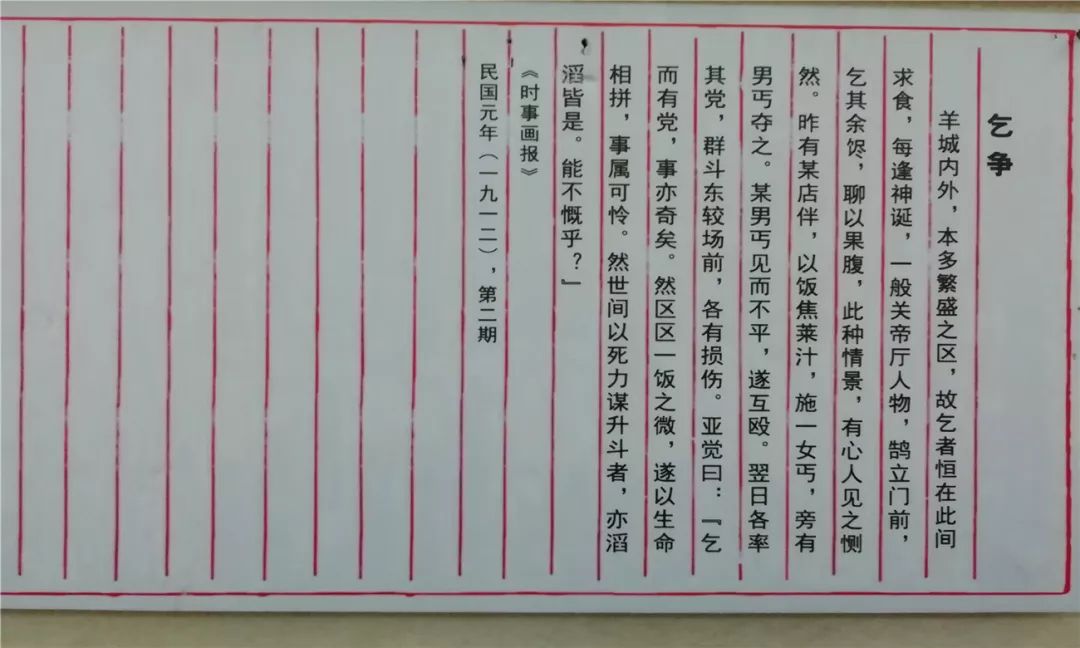 乞争
羊城内外，本多繁盛之区，故乞者恒在此间
求食，每逢神诞，一般关帝厅人物，鹄立门前，
乞其余馂，聊以果腹，此种情景，有心人见之恻
然。昨有某店伴，以饭焦莱汁，施一女丐，旁有
男丐夺之。某男丐见而不平，遂互殴。翌日各率
其党，群斗东较场前，各有损伤。亚觉曰：『乞
而有党，事亦奇矣。然区区一饭之微，遂以生命
相拼，事属可怜。然世间以死力谋升斗者，亦滔
滔皆是。能不慨乎？』
《时事画报》
民国元年（一九一二），第二期